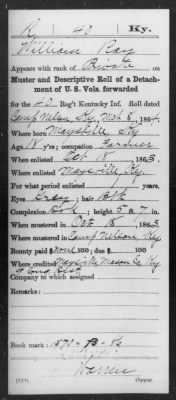 R | 40 | Ky.
William Ray
Appears with rank of Private on
Muster and Descriptive Roll of a Detach-
ment of U. S. Vols. forwarded
for the 40 Reg't Kentucky Inf. Roll dated
Camp Nelson, Ky. Mch 8, 1864.
Where born Maysville Ky
Age 18 y'rs; occupation Farmer
When enlisted Oct 18, 1863.
Where enlisted Maysville, Ky.
For what period enlisted years.
Eyes Gray; hair Blk
Complexion ; height 5 ft. 7 in.
When mustered in Oct 18, 1863
Where mustered in Camp Nelson, Ky
Bounty paid $ none 100; due $ 100
Where credited Maysville Mason Co Ky
9 Cong Dist
Company to which assigned
Remarks:
Book mark: 1570-B-86
(339) Copyist.